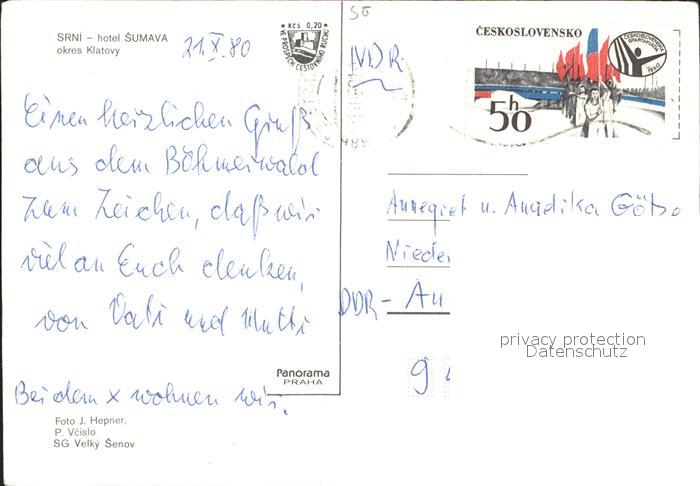 SRNÍ – hotel ŠUMAVA
okres Klatovy
21.X.80
KČS 0,20
VE PROSPĚCH CESTOVNÍHO RUCHU
Einen herzlichen Gruß
aus dem Böhmerwald
zum Zeichen, daß wir
viel an Euch denken,
von Vati und Mutti
Bei dem x wohnen wir.
Foto J. Hepner,
P. Včislo
SG Velký Šenov
Panorama
PRAHA
50
DDR
ČESKOSLOVENSKO
ČESKOSLOVENSKÁ SPARTAKIÁDA 1980
50 h
Annegret u. Angelika Götze
Nieder
DDR – Au
9
privacy protection
Datenschutz